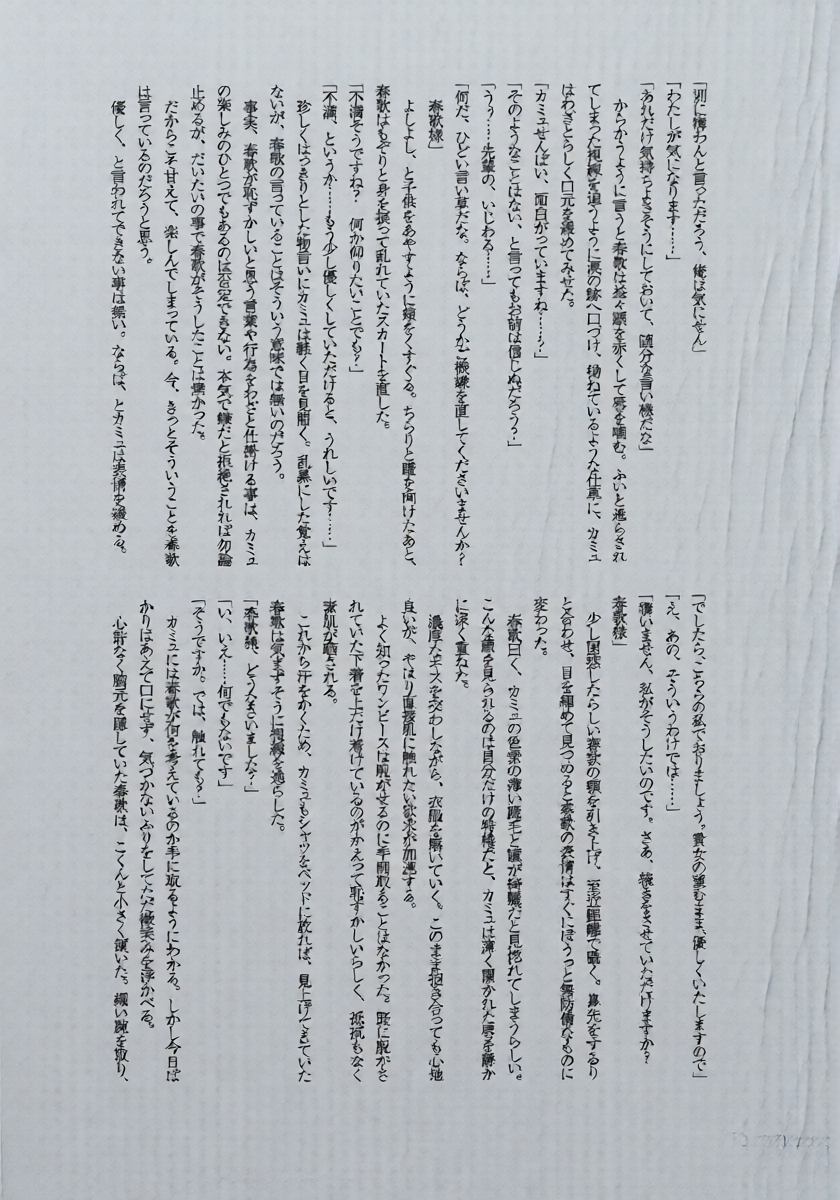 「別に構わんと言っただろう、俺は気にせん」
「わたしが気になります……」
「あれだけ気持ちよさそうにしておいて、随分な言い様だな」
　からかうように言うと春歌は益々頬を赤くして唇を噛む。ふいと逸らされ
てしまった視線を追うように涙の跡へ口づけ、拗ねているような仕草に、カミュ
はわざとらしく口元を緩めてみせた。
「カミュせんぱい、面白がっていますね……？」
「そのようなことはない、と言ってもお前は信じぬだろう？」
「うぅ……先輩の、いじわる……」
「何だ、ひどい言い草だな。ならば、どうかご機嫌を直してくださいませんか？
春歌様」
　よしよし、と子供をあやすように頬をくすぐる。ちらりと瞳を向けたあと、
春歌はもぞりと身を捩って乱れていたスカートを直した。
「不満そうですね？　何か仰りたいことでも？」
「不満、というか……もう少し優しくしていただけると、うれしいです……」
　珍しくはっきりとした物言いにカミュは軽く目を見開く。乱暴にした覚えは
ないが、春歌の言っていることはそういう意味では無いのだろう。
　事実、春歌が恥ずかしいと思う言葉や行為をわざと仕掛ける事は、カミュ
の楽しみのひとつでもあるのは否定できない。本気で嫌だと拒絶されれば勿論
止めるが、だいたいの事で春歌がそうしたことは無かった。
　だからこそ甘えて、楽しんでしまっている。今、きっとそういうことを春歌
は言っているのだろうと思う。
　優しく、と言われてできない事は無い。ならば、とカミュは表情を緩める。
「でしたら、こちらの私でおりましょう。貴女の望むまま、優しくいたしますので」
「え、あの、そういうわけでは……」
「構いません、私がそうしたいのです。さあ、続きをさせていただけますか？
春歌様」
　少し困惑したらしい春歌の顎を引き上げ、至近距離で囁く。鼻先をするり
と合わせ、目を細めて見つめると春歌の表情はすぐにぼうっと無防備なものに
変わった。
　春歌曰く、カミュの色素の薄い睫毛と瞳が綺麗だと見惚れてしまうらしい。
こんな顔を見られるのは自分だけの特権だと、カミュは薄く開かれた唇を静か
に深く重ねた。
　濃厚なキスを交わしながら、衣服を解いていく。このまま抱き合っても心地
良いが、やはり直接肌に触れたい欲求が加速する。
　よく知ったワンピースは脱がせるのに手間取ることはなかった。既に脱がさ
れていた下着を上だけ着けているのがかえって恥ずかしいらしく、抵抗もなく
素肌が晒される。
　これから汗をかくため、カミュもシャツをベッドに放れば、見上げてきていた
春歌は気まずそうに視線を逸らした。
「春歌様、どうなさいました？」
「い、いえ……何でもないです」
「そうですか。では、触れても？」
　カミュには春歌が何を考えているのか手に取るようにわかる。しかし今日ば
かりはあえて口にせず、気づかないふりをしてただ微笑みを浮かべる。
　心許なく胸元を隠していた春歌は、こくんと小さく頷いた。細い腕を取り、